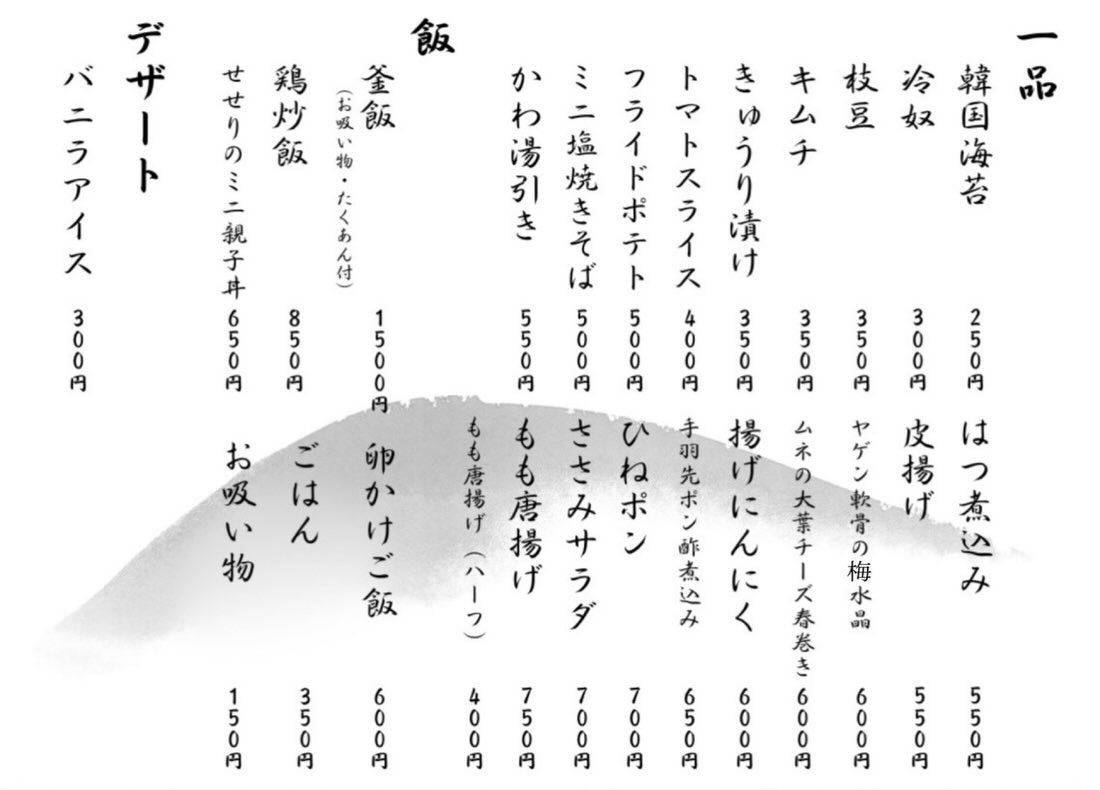 一品
韓国海苔 250円
冷奴 300円
枝豆 350円
キムチ 350円
きゅうり漬け 350円
トマトスライス 400円
フライドポテト 500円
ミニ塩焼きそば 500円
かわ湯引き 550円
はつ煮込み 550円
皮揚げ 550円
ヤゲン軟骨の梅水晶 600円
ムネの大葉チーズ春巻き 600円
揚げにんにく 600円
手羽先ポン酢煮込み 650円
ひねポン 700円
ささみサラダ 700円
もも唐揚げ 750円
もも唐揚げ（ハーフ） 400円
飯
釜飯 1500円
（お吸い物・たくあん付）
鶏炒飯 850円
せせりのミニ親子丼 650円
卵かけご飯 600円
ごはん 350円
お吸い物 150円
デザート
バニラアイス 300円